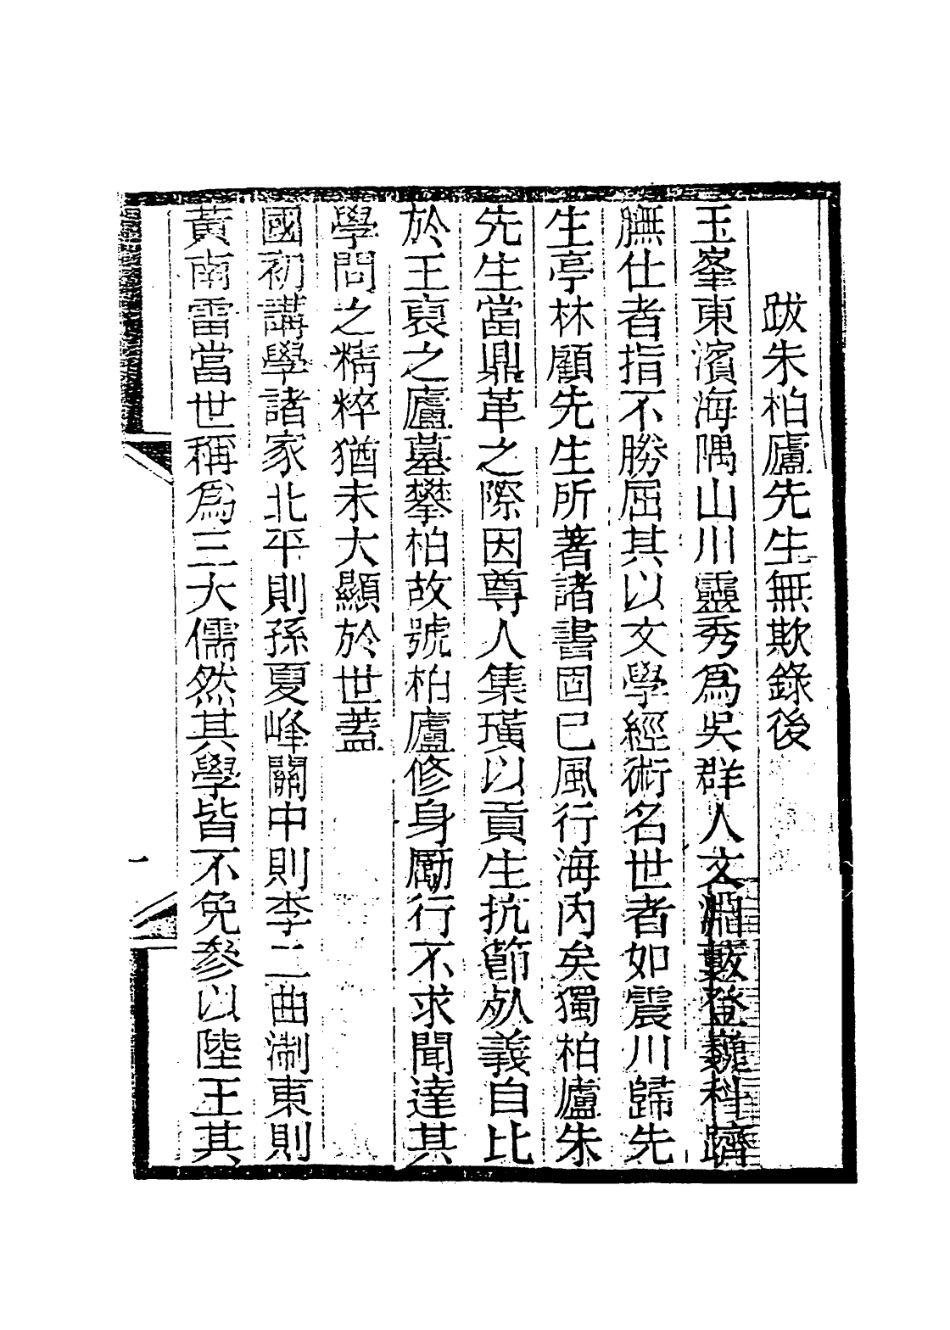 跋朱柏廬先生無欺錄後
玉峯東濱海隅山川靈秀爲吳群人文淵藪登巍科躋
膴仕者指不勝屈其以文學經術名世者如震川歸先
生亭林顧先生所著諸書固已風行海內矣獨柏廬朱
先生當鼎革之際因尊人集璜以貢生抗節殉義自比
於王裒之廬墓攀柏故號柏廬修身勵行不求聞達其
學問之精粹猶未大顯於世蓋
國初講學諸家北平則孫夏峰關中則李二曲淛東則
黃南雷當世稱爲三大儒然其學皆不免參以陸王其
一